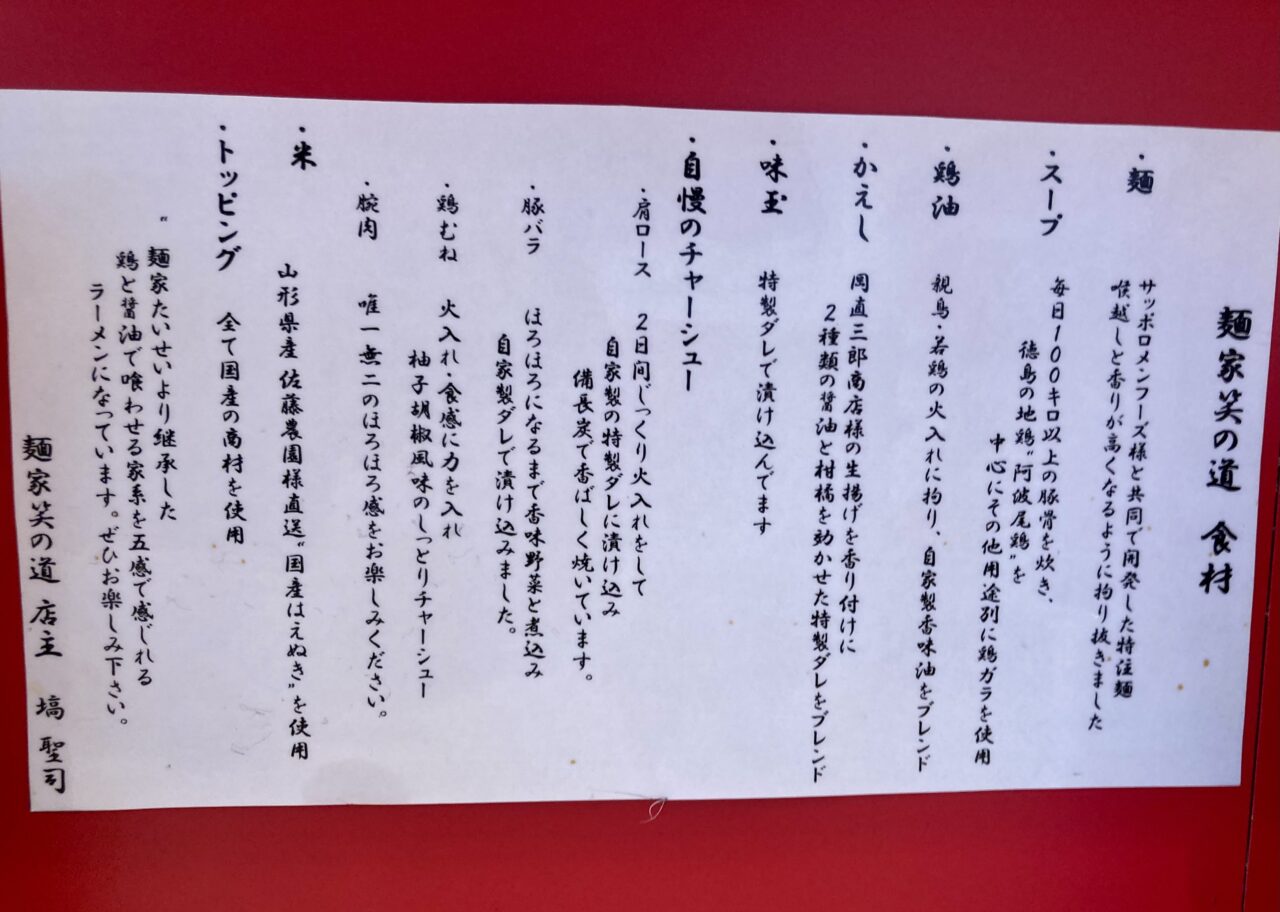 麵家笑の道 食材
・麵
サッポロメンフーズ様と共同で開発した特注麵
喉越しと香りが高くなるように拘り抜きました
・スープ
毎日100キロ以上の豚骨を炊き、
徳島の地鶏“阿波尾鶏”を
中心にその他用途別に鶏ガラを使用
・鶏油
親鳥・若鶏の火入れに拘り、自家製香味油をブレンド
・かえし
岡直三郎商店様の生揚げを香り付けに
2種類の醤油と柑橘を効かせた特製ダレをブレンド
・味玉
特製ダレで漬け込んでます
・自慢のチャーシュー
・肩ロース 2日間じっくり火入れをして
自家製の特製ダレに漬け込み
備長炭で香ばしく焼いています。
・豚バラ ほろほろになるまで香味野菜と煮込み
自家製ダレで漬け込みました。
・鶏むね 火入れ・食感に力を入れ
柚子胡椒風味のしっとりチャーシュー
・腕肉 唯一無二のほろほろ感をお楽しみください。
・米
山形県産 佐藤農園様直送“国産はえぬき”を使用
・トッピング 全て国産の商材を使用
“ 麵家たいせいより継承した
鶏と醤油で喰わせる家系を五感で感じれる
ラーメンになっています。ぜひお楽しみ下さい。
麵家笑の道 店主 塙 聖司